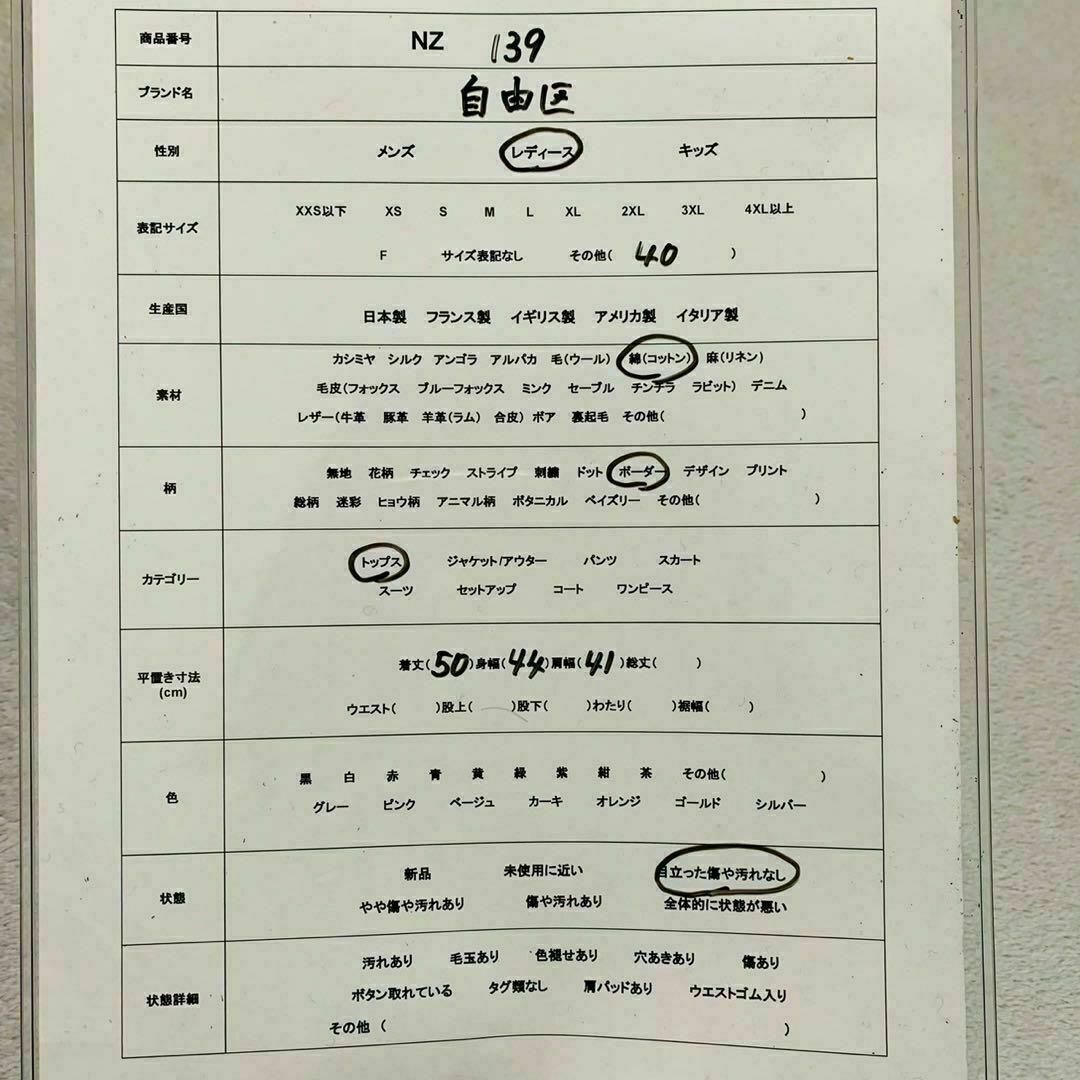 商品番号 NZ 139
ブランド名 自由区
性別 メンズ レディース キッズ
XXS以下 XS S M L XL 2XL 3XL 4XL以上
表記サイズ
F サイズ表記なし その他( 40 )
生産国 日本製 フランス製 イギリス製 アメリカ製 イタリア製
カシミヤ シルク アンゴラ アルパカ 毛(ウール) 綿(コットン) 麻(リネン)
素材 毛皮(フォックス ブルーフォックス ミンク セーブル チンチラ ラビット) デニム
レザー(牛革 豚革 羊革(ラム) 合皮) ボア 裏起毛 その他( )
無地 花柄 チェック ストライプ 刺繍 ドット ボーダー デザイン プリント
柄
総柄 迷彩 ヒョウ柄 アニマル柄 ボタニカル ペイズリー その他( )
トップス ジャケット/アウター パンツ スカート
カテゴリー
スーツ セットアップ コート ワンピース
着丈(50)身幅(44)肩幅(41)総丈( )
平置き寸法
(cm)
ウエスト( )股上( )股下( )わたり( )裾幅( )
黒 白 赤 青 黄 緑 紫 紺 茶 その他( )
色
グレー ピンク ベージュ カーキ オレンジ ゴールド シルバー
新品 未使用に近い 目立った傷や汚れなし
状態
やや傷や汚れあり 傷や汚れあり 全体的に状態が悪い
汚れあり 毛玉あり 色褪せあり 穴あきあり 傷あり
状態詳細 ボタン取れている タグ類なし 肩パッドあり ウエストゴム入り
その他 ( )